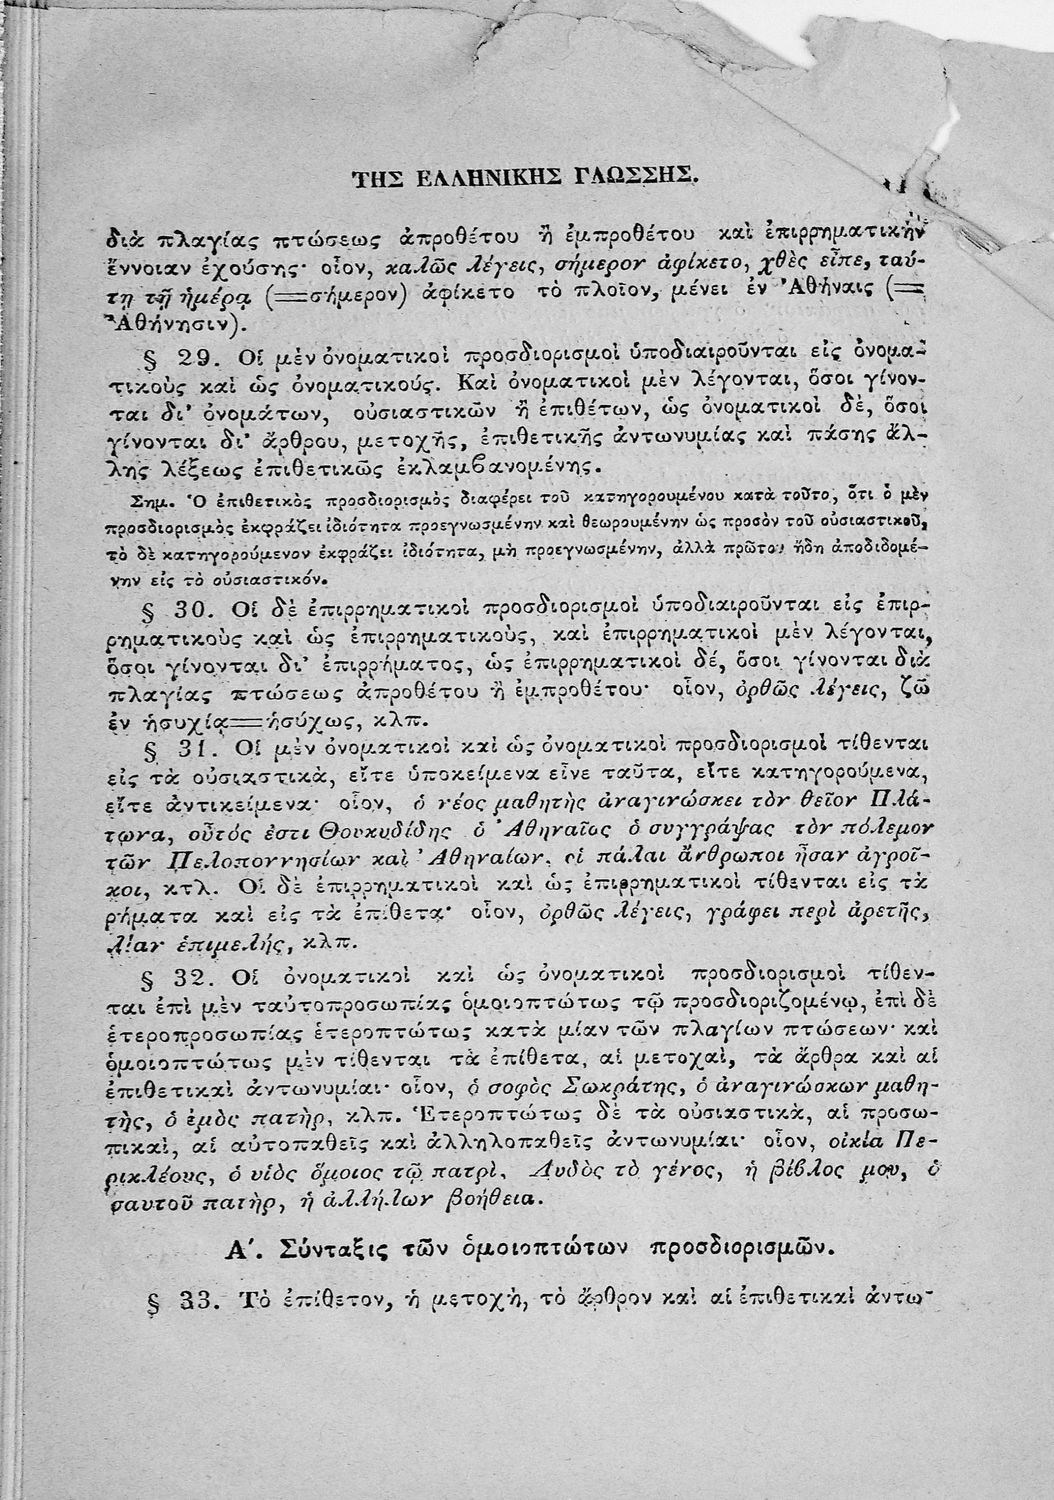 ΤΗΣ ΕΛΛΗΝΙΚΗΣ ΓΛΩΣΣΗΣ.
διὰ πλαγίας πτώσεως ἀπροθέτου ἢ ἐμπροθέτου καὶ ἐπιρρηματικὴν
ἔννοιαν ἐχούσης· οἷον, καλῶς λέγεις, σήμερον ἀφίκετο, χθὲς εἶπε, ταύ-
τῃ τῇ ἡμέρᾳ (=σήμερον) ἀφίκετο τὸ πλοῖον, μένει ἐν Ἀθήναις (=
Ἀθήνησιν).
§ 29. Οἱ μὲν ὀνοματικοὶ προσδιορισμοὶ ὑποδιαιροῦνται εἰς ὀνομα-
τικοὺς καὶ ὡς ὀνοματικούς. Καὶ ὀνοματικοὶ μὲν λέγονται, ὅσοι γίνον-
ται δι' ὀνομάτων, οὐσιαστικῶν ἢ ἐπιθέτων, ὡς ὀνοματικοὶ δὲ, ὅσοι
γίνονται δι' ἄρθρου, μετοχῆς, ἐπιθετικῆς ἀντωνυμίας καὶ πάσης ἄλ-
λης λέξεως ἐπιθετικῶς ἐκλαμβανομένης.
Σημ. Ὁ ἐπιθετικὸς προσδιορισμὸς διαφέρει τοῦ κατηγορουμένου κατὰ τοῦτο, ὅτι ὁ μὲν
προσδιορισμὸς ἐκφράζει ἰδιότητα προεγνωσμένην καὶ θεωρουμένην ὡς προσὸν τοῦ οὐσιαστικοῦ,
τὸ δὲ κατηγορούμενον ἐκφράζει ἰδιότητα, μὴ προεγνωσμένην, ἀλλὰ πρῶτον ἤδη ἀποδιδομέ-
νην εἰς τὸ οὐσιαστικόν.
§ 30. Οἱ δὲ ἐπιρρηματικοὶ προσδιορισμοὶ ὑποδιαιροῦνται εἰς ἐπιρ-
ρηματικοὺς καὶ ὡς ἐπιρρηματικοὺς, καὶ ἐπιρρηματικοὶ μὲν λέγονται,
ὅσοι γίνονται δι' ἐπιρρήματος, ὡς ἐπιρρηματικοὶ δέ, ὅσοι γίνονται διὰ
πλαγίας πτώσεως ἀπροθέτου ἢ ἐμπροθέτου· οἷον, ὀρθῶς λέγεις, ζῶ
ἐν ἡσυχίᾳ=ἡσύχως, κλπ.
§ 31. Οἱ μὲν ὀνοματικοὶ καὶ ὡς ὀνοματικοὶ προσδιορισμοὶ τίθενται
εἰς τὰ οὐσιαστικὰ, εἴτε ὑποκείμενα εἶνε ταῦτα, εἴτε κατηγορούμενα,
εἴτε ἀντικείμενα· οἷον, ὁ νέος μαθητὴς ἀναγινώσκει τὸν θεῖον Πλά-
τωνα, οὗτός ἐστι Θουκυδίδης ὁ Ἀθηναῖος ὁ συγγράψας τὸν πόλεμον
τῶν Πελοποννησίων καὶ Ἀθηναίων, οἱ πάλαι ἄνθρωποι ἦσαν ἀγροῖ-
κοι, κτλ. Οἱ δὲ ἐπιρρηματικοὶ καὶ ὡς ἐπιρρηματικοὶ τίθενται εἰς τὰ
ρήματα καὶ εἰς τὰ ἐπίθετα· οἷον, ὀρθῶς λέγεις, γράφει περὶ ἀρετῆς,
λίαν ἐπιμελής, κλπ.
§ 32. Οἱ ὀνοματικοὶ καὶ ὡς ὀνοματικοὶ προσδιορισμοὶ τίθεν-
ται ἐπὶ μὲν ταὐτοπροσωπίας ὁμοιοπτώτως τῷ προσδιοριζομένῳ, ἐπὶ δὲ
ἑτεροπροσωπίας ἑτεροπτώτως κατὰ μίαν τῶν πλαγίων πτώσεων· καὶ
ὁμοιοπτώτως μὲν τίθενται τὰ ἐπίθετα, αἱ μετοχαὶ, τὰ ἄρθρα καὶ αἱ
ἐπιθετικαὶ ἀντωνυμίαι· οἷον, ὁ σοφὸς Σωκράτης, ὁ ἀναγινώσκων μαθη-
τὴς, ὁ ἐμὸς πατὴρ, κλπ. Ἑτεροπτώτως δὲ τὰ οὐσιαστικὰ, αἱ προσω-
πικαὶ, αἱ αὐτοπαθεῖς καὶ ἀλληλοπαθεῖς ἀντωνυμίαι· οἷον, οἰκία Πε-
ρικλέους, ὁ υἱὸς ὅμοιος τῷ πατρὶ, Λυδὸς τὸ γένος, ἡ βίβλος μου, ὁ
σαυτοῦ πατὴρ, ἡ ἀλλήλων βοήθεια.
Α΄. Σύνταξις τῶν ὁμοιοπτώτων προσδιορισμῶν.
§ 33. Τὸ ἐπίθετον, ἡ μετοχὴ, τὸ ἄρθρον καὶ αἱ ἐπιθετικαὶ ἀντω-